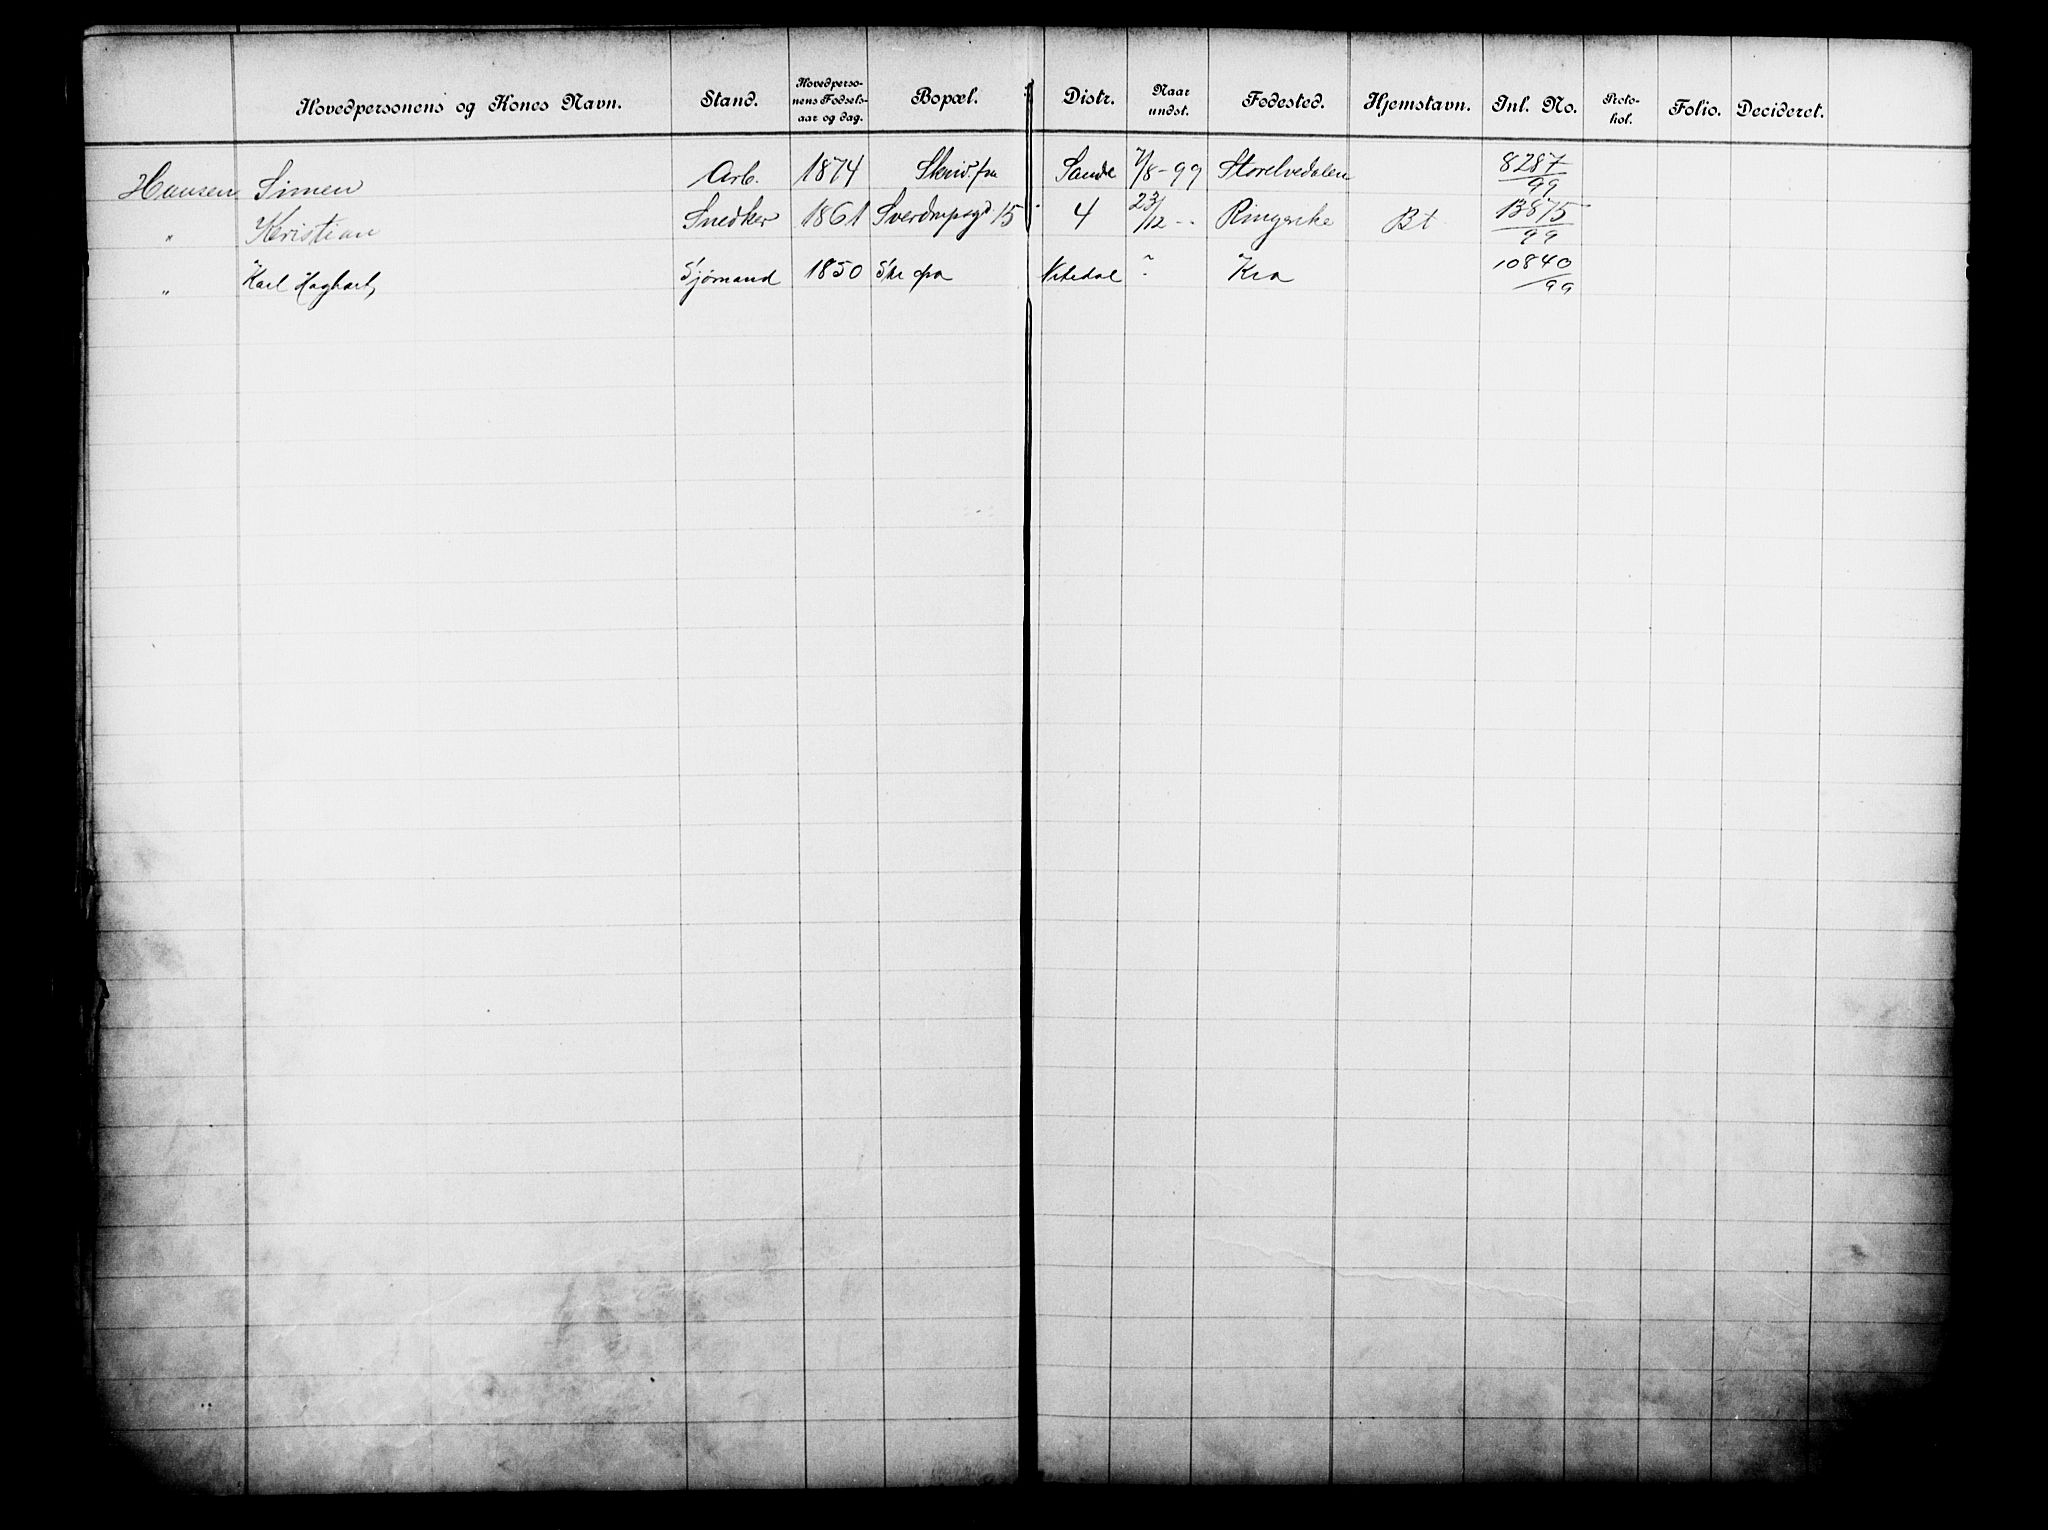 Hovedpersonens og Kones Navn. Stand. Hovedperso-nens Fødsels-aar og dag. Bopæl. Distr. Naar undst. Fødested. Hjemstavn. Inl. No. Proto-kol. Folio. Decideret.
Hansen Simen Arb. 1874 Skriv. fra Sande 7/8-99 Storelvedalen 8287/99
" Kristian Snedker 1861 Sverdrupsgd 15 4 23/12 - Ringerike Bt 13875/99
" Karl Hagbart, Sjømand 1850 Skr fra Nitedal " Kra 10840/99